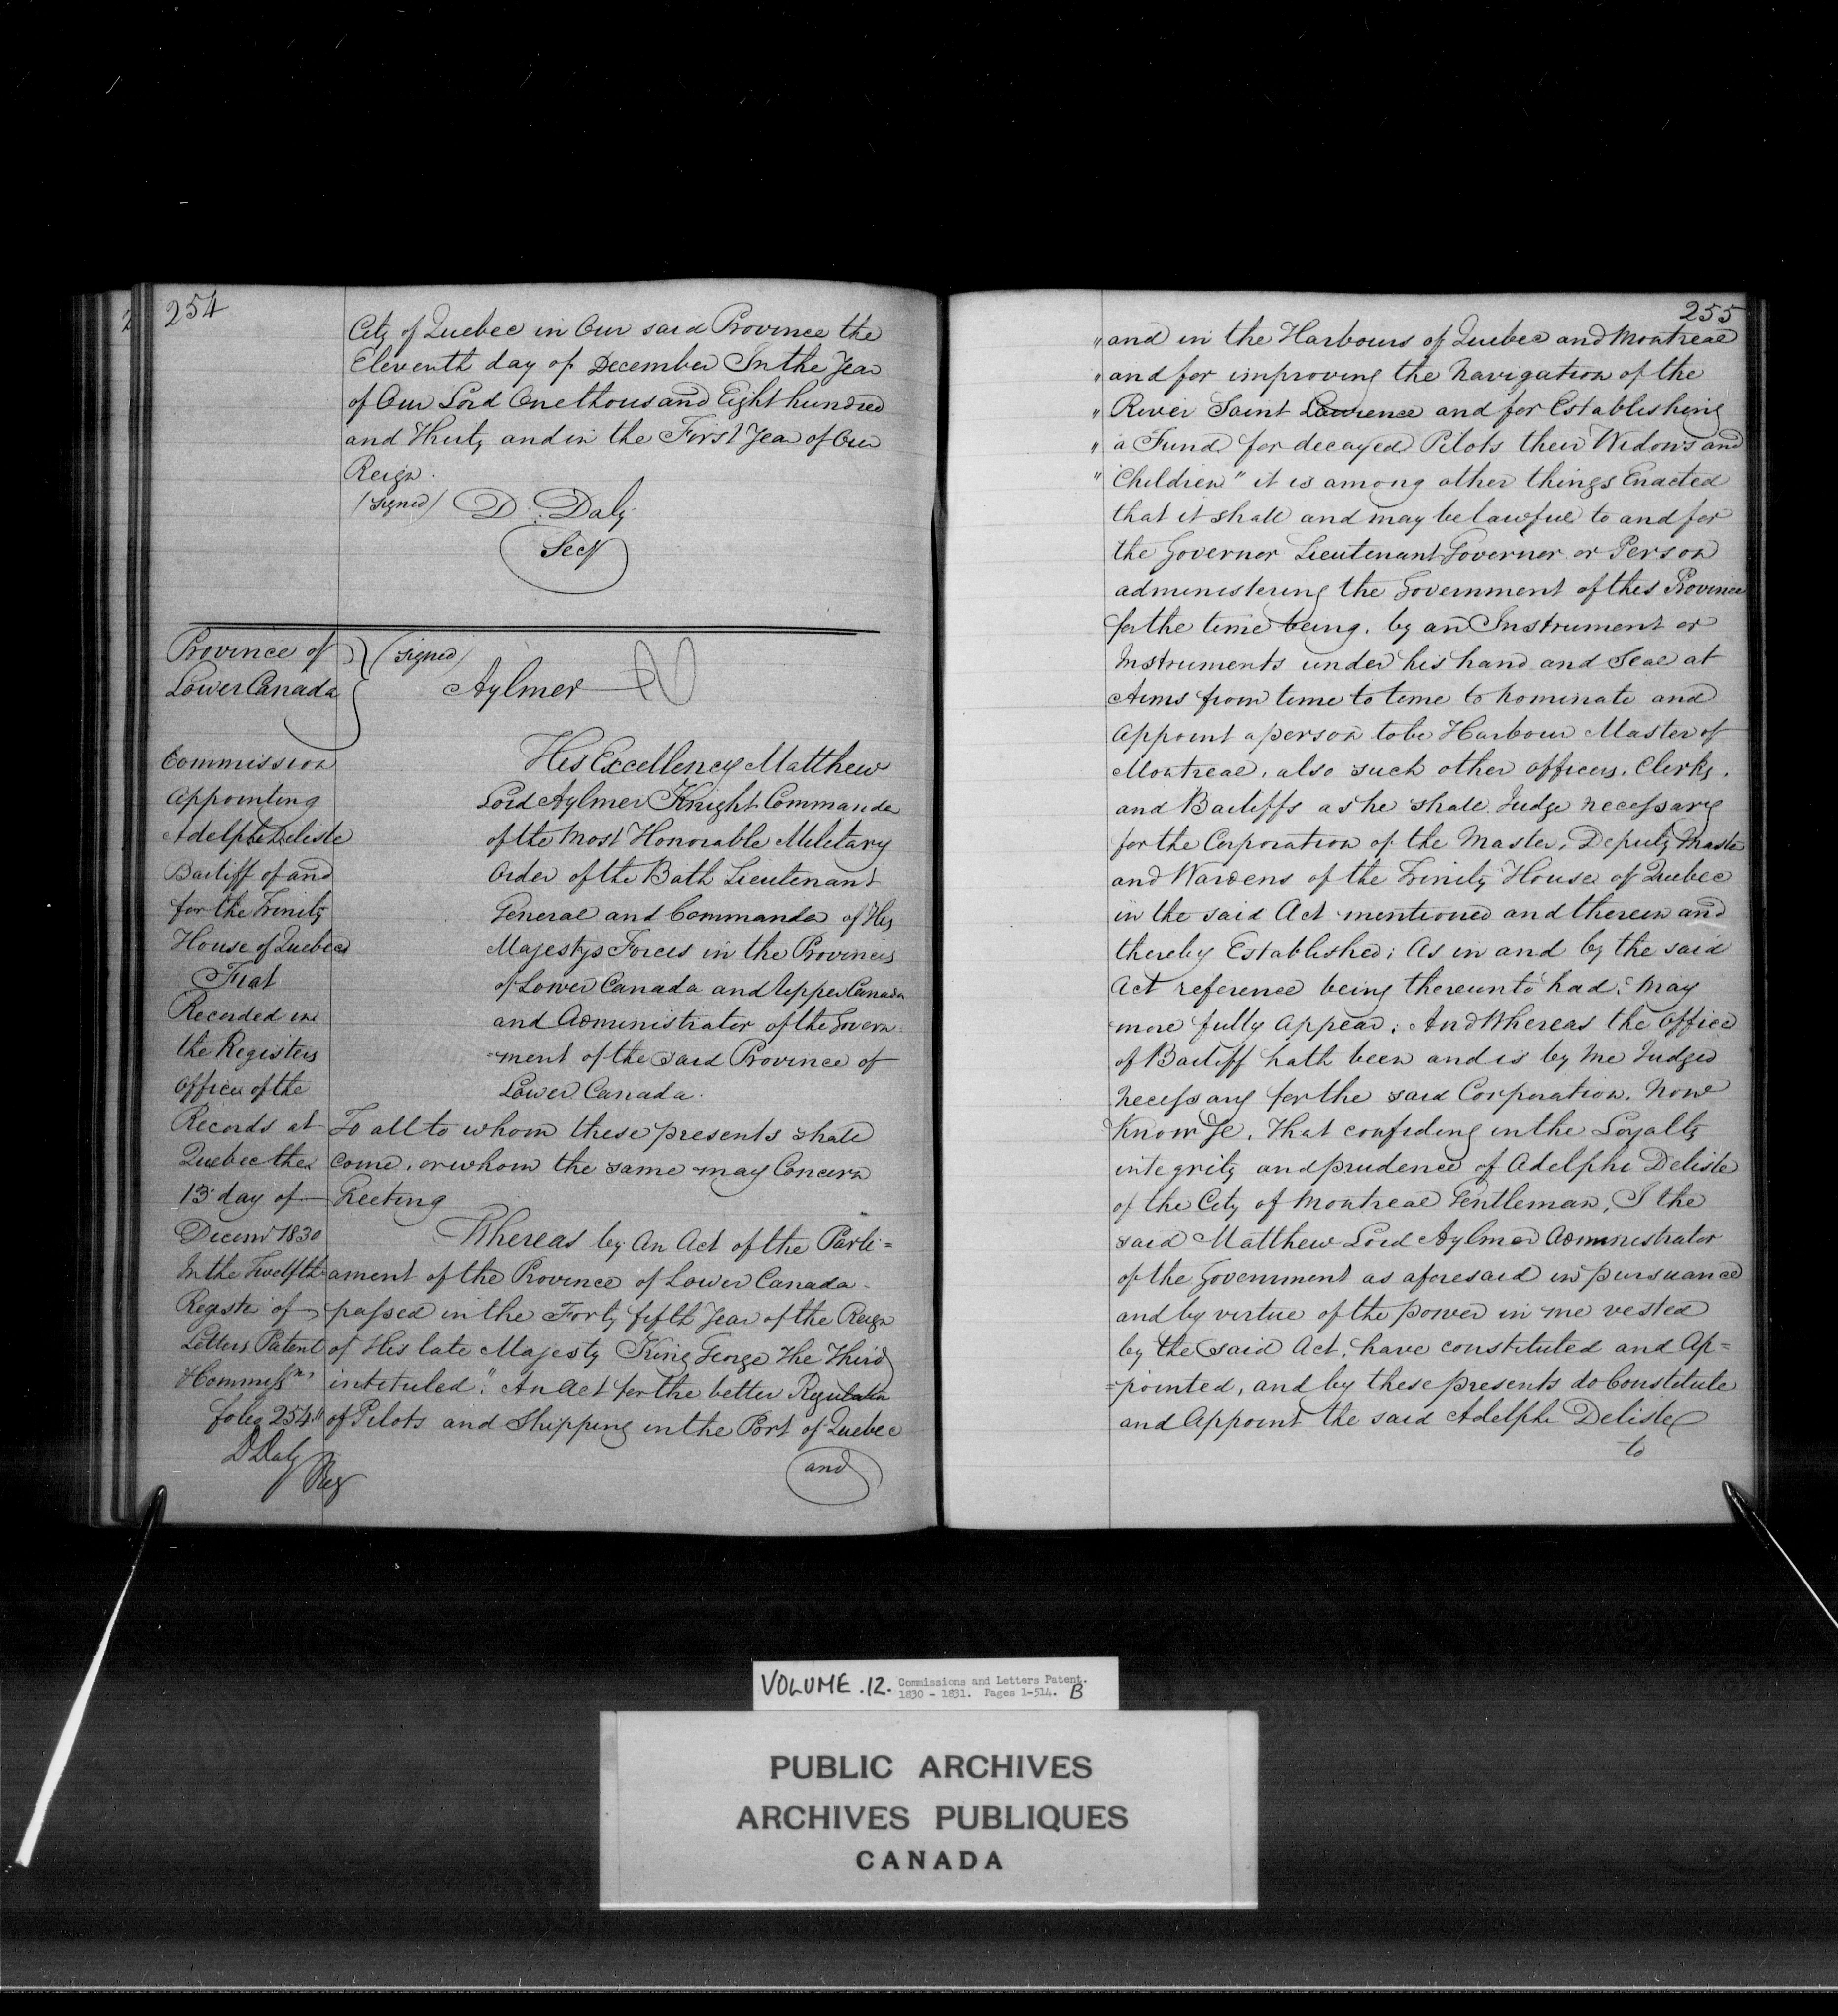 254
City of Quebec in Our said Province the
Eleventh day of December In the Year
of Our Lord One thousand Eight hundred
and Thirty and in the First Year of Our
Reign.
(signed) D. Daly
Secy
Province of
Lower Canada
(signed)
Aylmer
Commission
Appointing
Adelphe Delisle
Bailiff of and
for the Trinity
House of Quebec
Fiat
Recorded in
the Registers
Office of the
Records at
Quebec the
13 day of
Decemr 1830
In the Twelfth
Register of
Letters Patent
Commissns
folio 254
D Daly
Reg
His Excellency Matthew
Lord Aylmer Knight Commander
of the Most Honorable Military
Order of the Bath Lieutenant
General and Commander of His
Majestys Forces in the Provinces
of Lower Canada and Upper Canada
and Administrator of the Govern-
-ment of the said Province of
Lower Canada.
To all to whom these presents shall
Come, or whom the same may Concern
Greeting
Whereas by An Act of the Parli=
ament of the Province of Lower Canada
passed in the Forty fifth Year of the Reign
of His late Majesty King George the Third
intituled "An Act for the better Regulation
of Pilots and Shipping in the Port of Quebec
and
255
" and in the Harbours of Quebec and Montreal
" and for improving the Navigation of the
" River Saint Lawrence and for Establishing
" a Fund for decayed Pilots their Widows and
" Children" it is among other things Enacted
that it shall and may be lawful to and for
the Governor Lieutenant Governor or Person
administering the Government of this Province
for the time being, by an Instrument or
Instruments under his hand and Seal at
Arms from time to time to nominate and
Appoint a person to be Harbour Master of
Montreal, also such other officers, Clerks,
and Bailiffs as he shall Judge necessary
for the Corporation of the Master, Deputy Master
and Wardens of the Trinity House of Quebec
in the said Act mentioned and therein and
thereby Established; As in and by the said
Act reference being thereunto had, may
more fully appear; And Whereas the Office
of Bailiff hath been and is by me Judged
necessary for the said Corporation. Now
Know Ye, That confiding in the Loyalty
integrity and prudence of Adelphe Delisle
of the City of Montreal Gentleman, I the
said Matthew Lord Aylmer Administrator
of the Government as aforesaid in pursuance
and by virtue of the power in me vested
by the said Act, have constituted and Ap=
=pointed, and by these presents do Constitute
and Appoint the said Adelphe Delisle
to
VOLUME .12. Commissions and Letters Patent.
1830 - 1831. Pages 1-514. B
PUBLIC ARCHIVES
ARCHIVES PUBLIQUES
CANADA